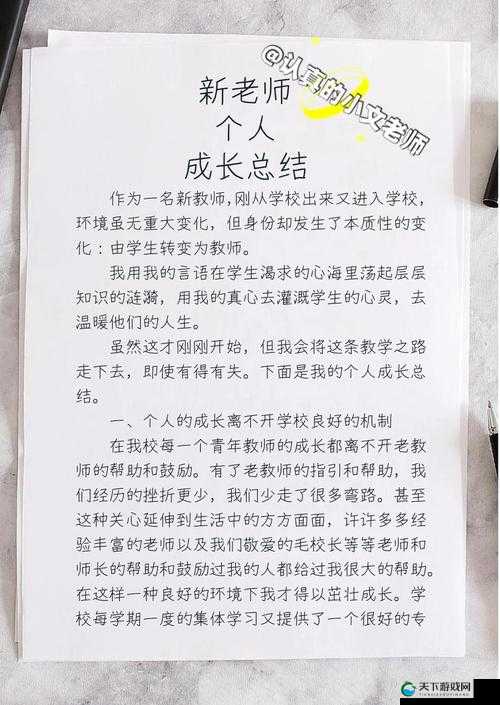 @认真的小文老师
新老师
个人
成长总结
作为一名新教师,刚从学校出来又进入学校,
环境虽无重大变化，但身份却发生了本质性的变
化：由学生转变为教师。
我用我的言语在学生渴求的心海里荡起层层
知识的涟漪，用我的真心去灌溉学生的心灵，去
温暖他们的人生。
虽然这才刚刚开始，但我会将这条教学之路
走下去，即使有得有失。下面是我的个人成长总
结。
一、个人的成长离不开学校良好的机制
在我校每一个青年教师的成长都离不开老教
师的帮助和鼓励。有了老教师的指引和帮助，我
们经历的挫折更少，我们少走了很多弯路。甚至
这种关心延伸到生活中的方方面面，许许多多经
验丰富的老师以及我们敬爱的毛校长等等老师和
师长的帮助和鼓励过我的人都给过我很大的帮助。
在这样一种良好的环境下我才得以茁壮成长。学
校每学期一度的集体学习又提供了一个很好的专
天下游戏网